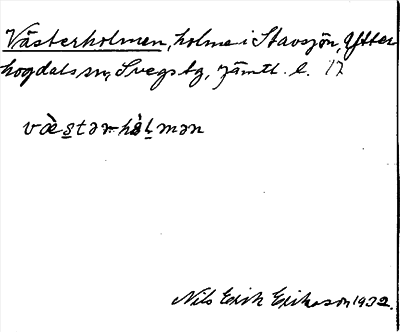 Västerholmen, holme i Stavsjön, Ytter
hogdals sn, Svegs tg, Jämtl. l. 17
væ̀stər hòlmən
Nils Erik Eriksson 1932.